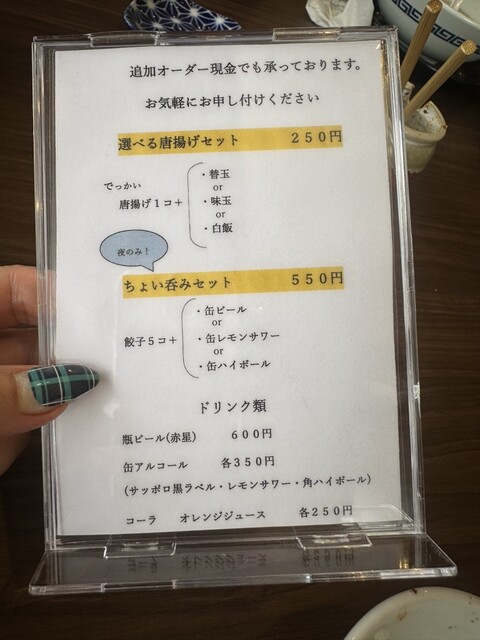 追加オーダー現金でも承っております。
お気軽にお申し付けください
選べる唐揚げセット 250円
でっかい
唐揚げ1コ+
・替玉
or
・味玉
or
・白飯
夜のみ!
ちょい呑みセット 550円
餃子5コ+
・缶ビール
or
・缶レモンサワー
or
・缶ハイボール
ドリンク類
瓶ビール(赤星) 600円
缶アルコール 各350円
(サッポロ黒ラベル・レモンサワー・角ハイボール)
コーラ オレンジジュース 各250円